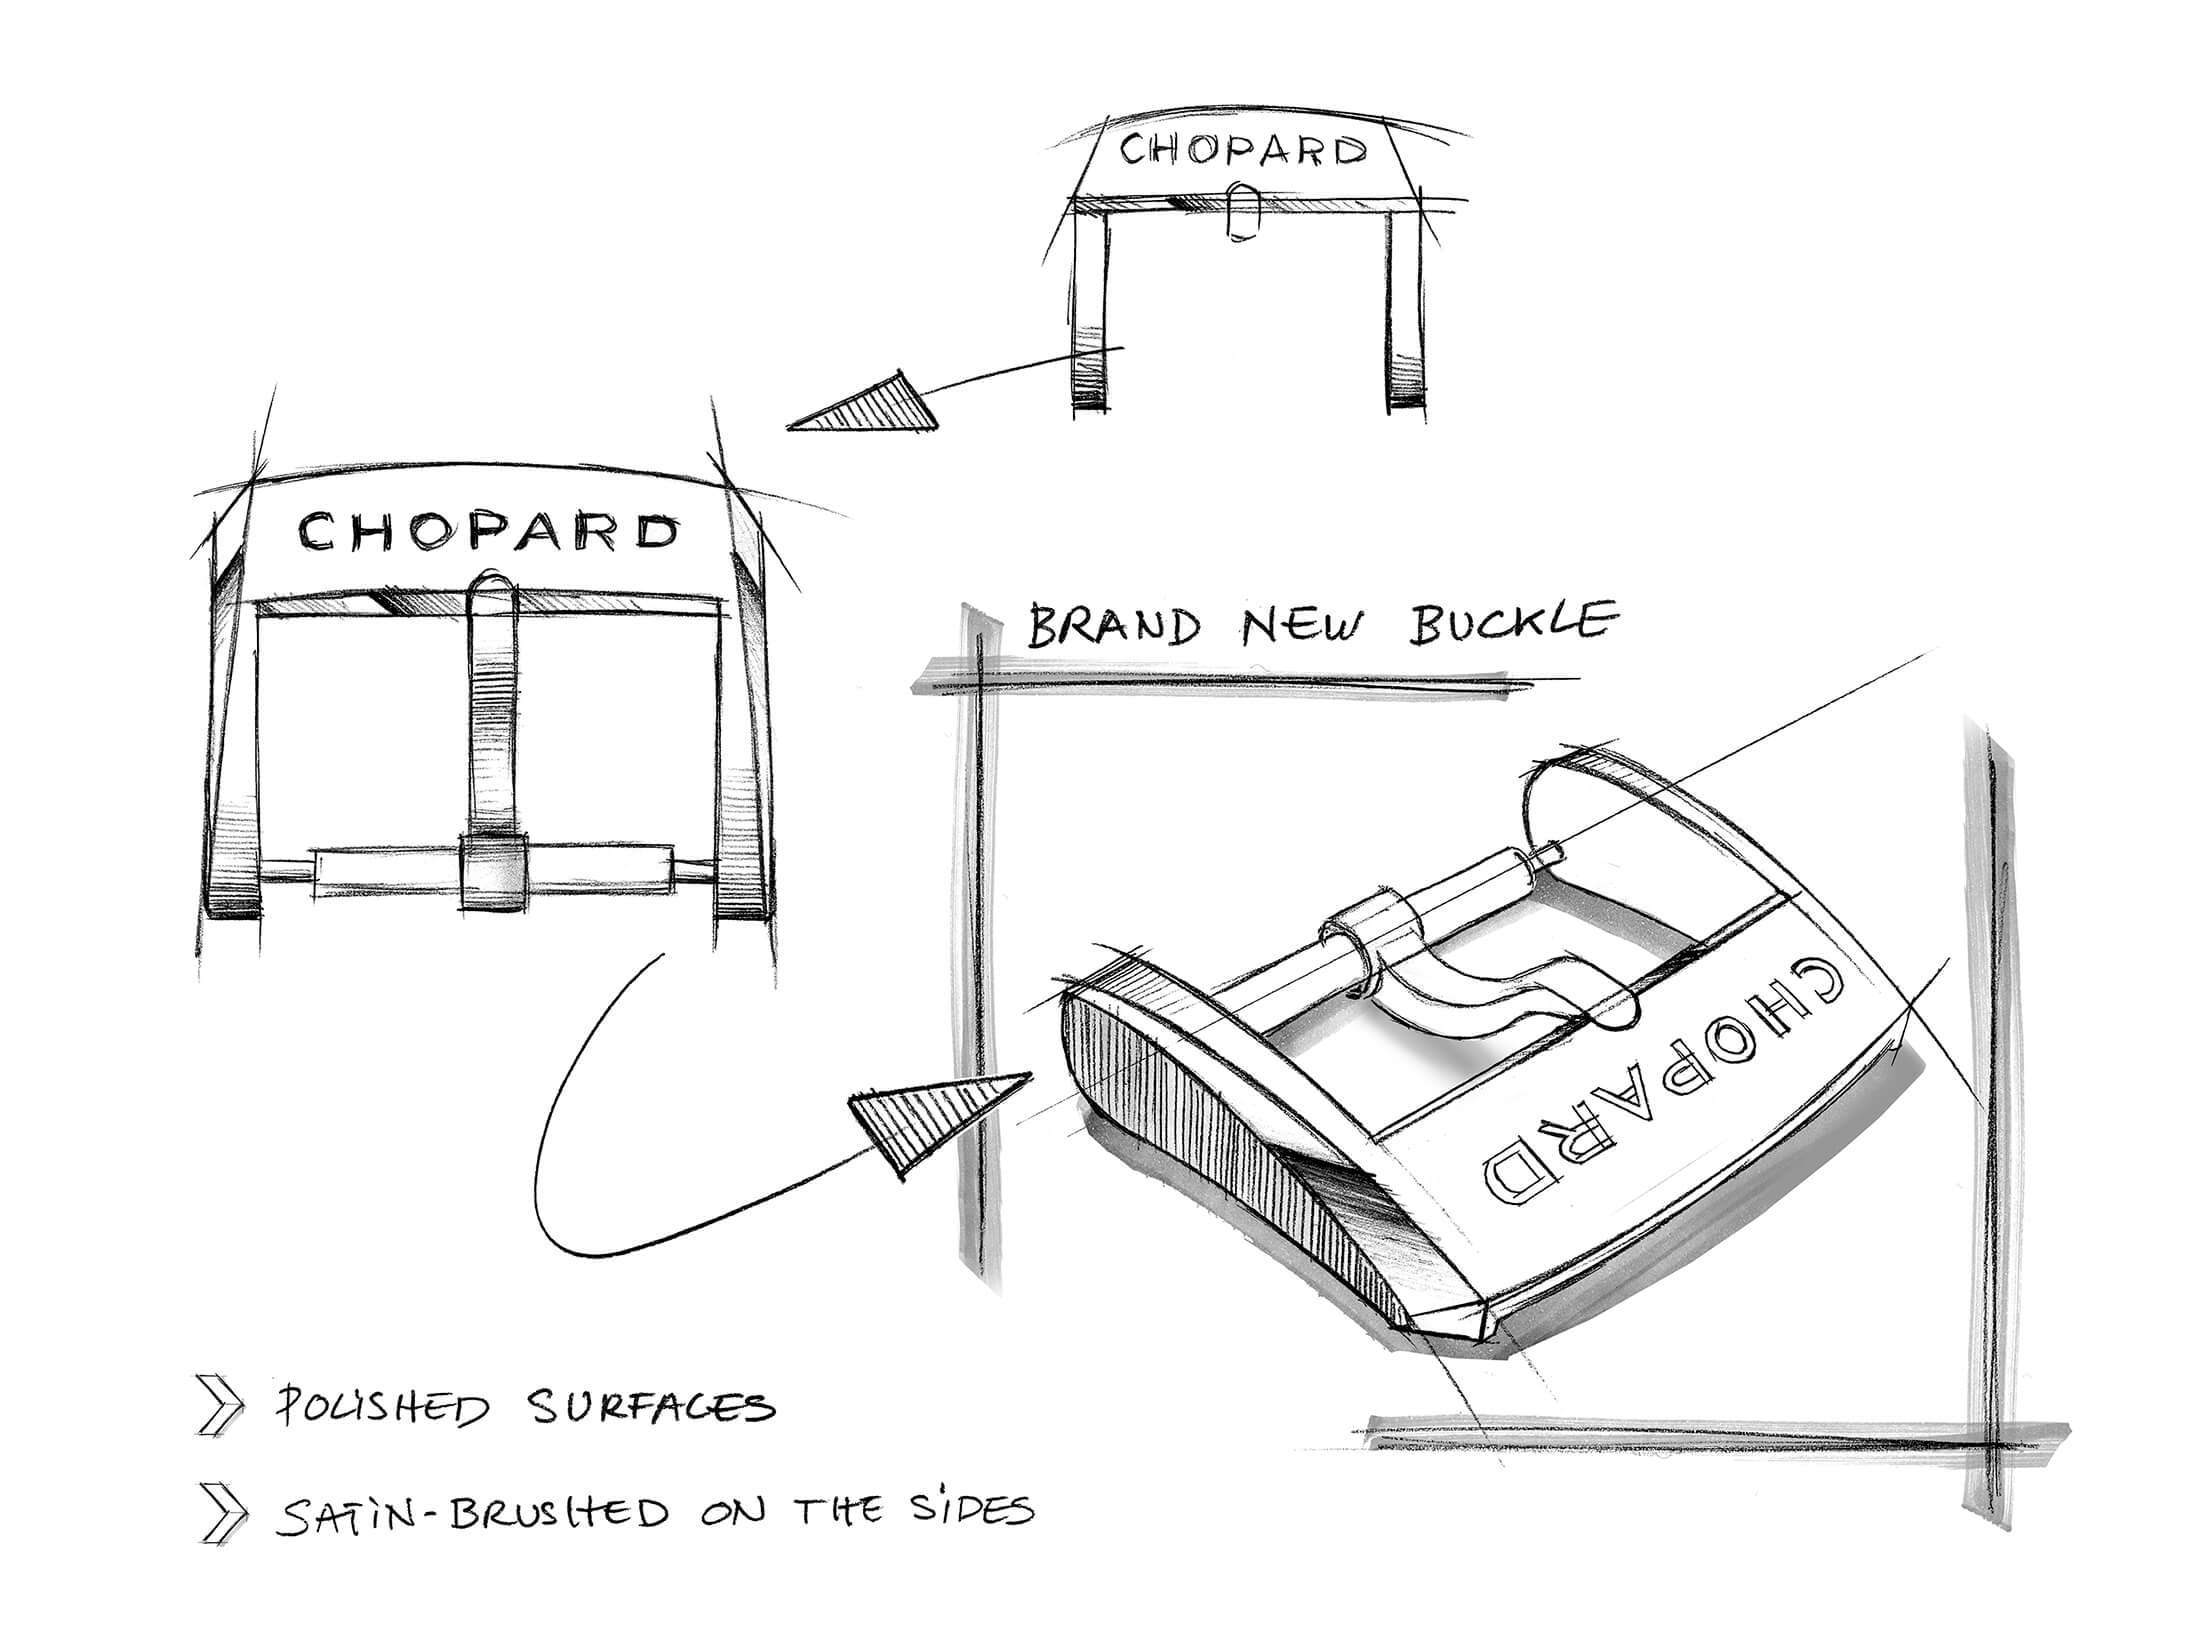 CHOPARD
CHOPARD
BRAND NEW BUCKLE
CHOPARD
POLISHED SURFACES
SATIN-BRUSHED ON THE SIDES